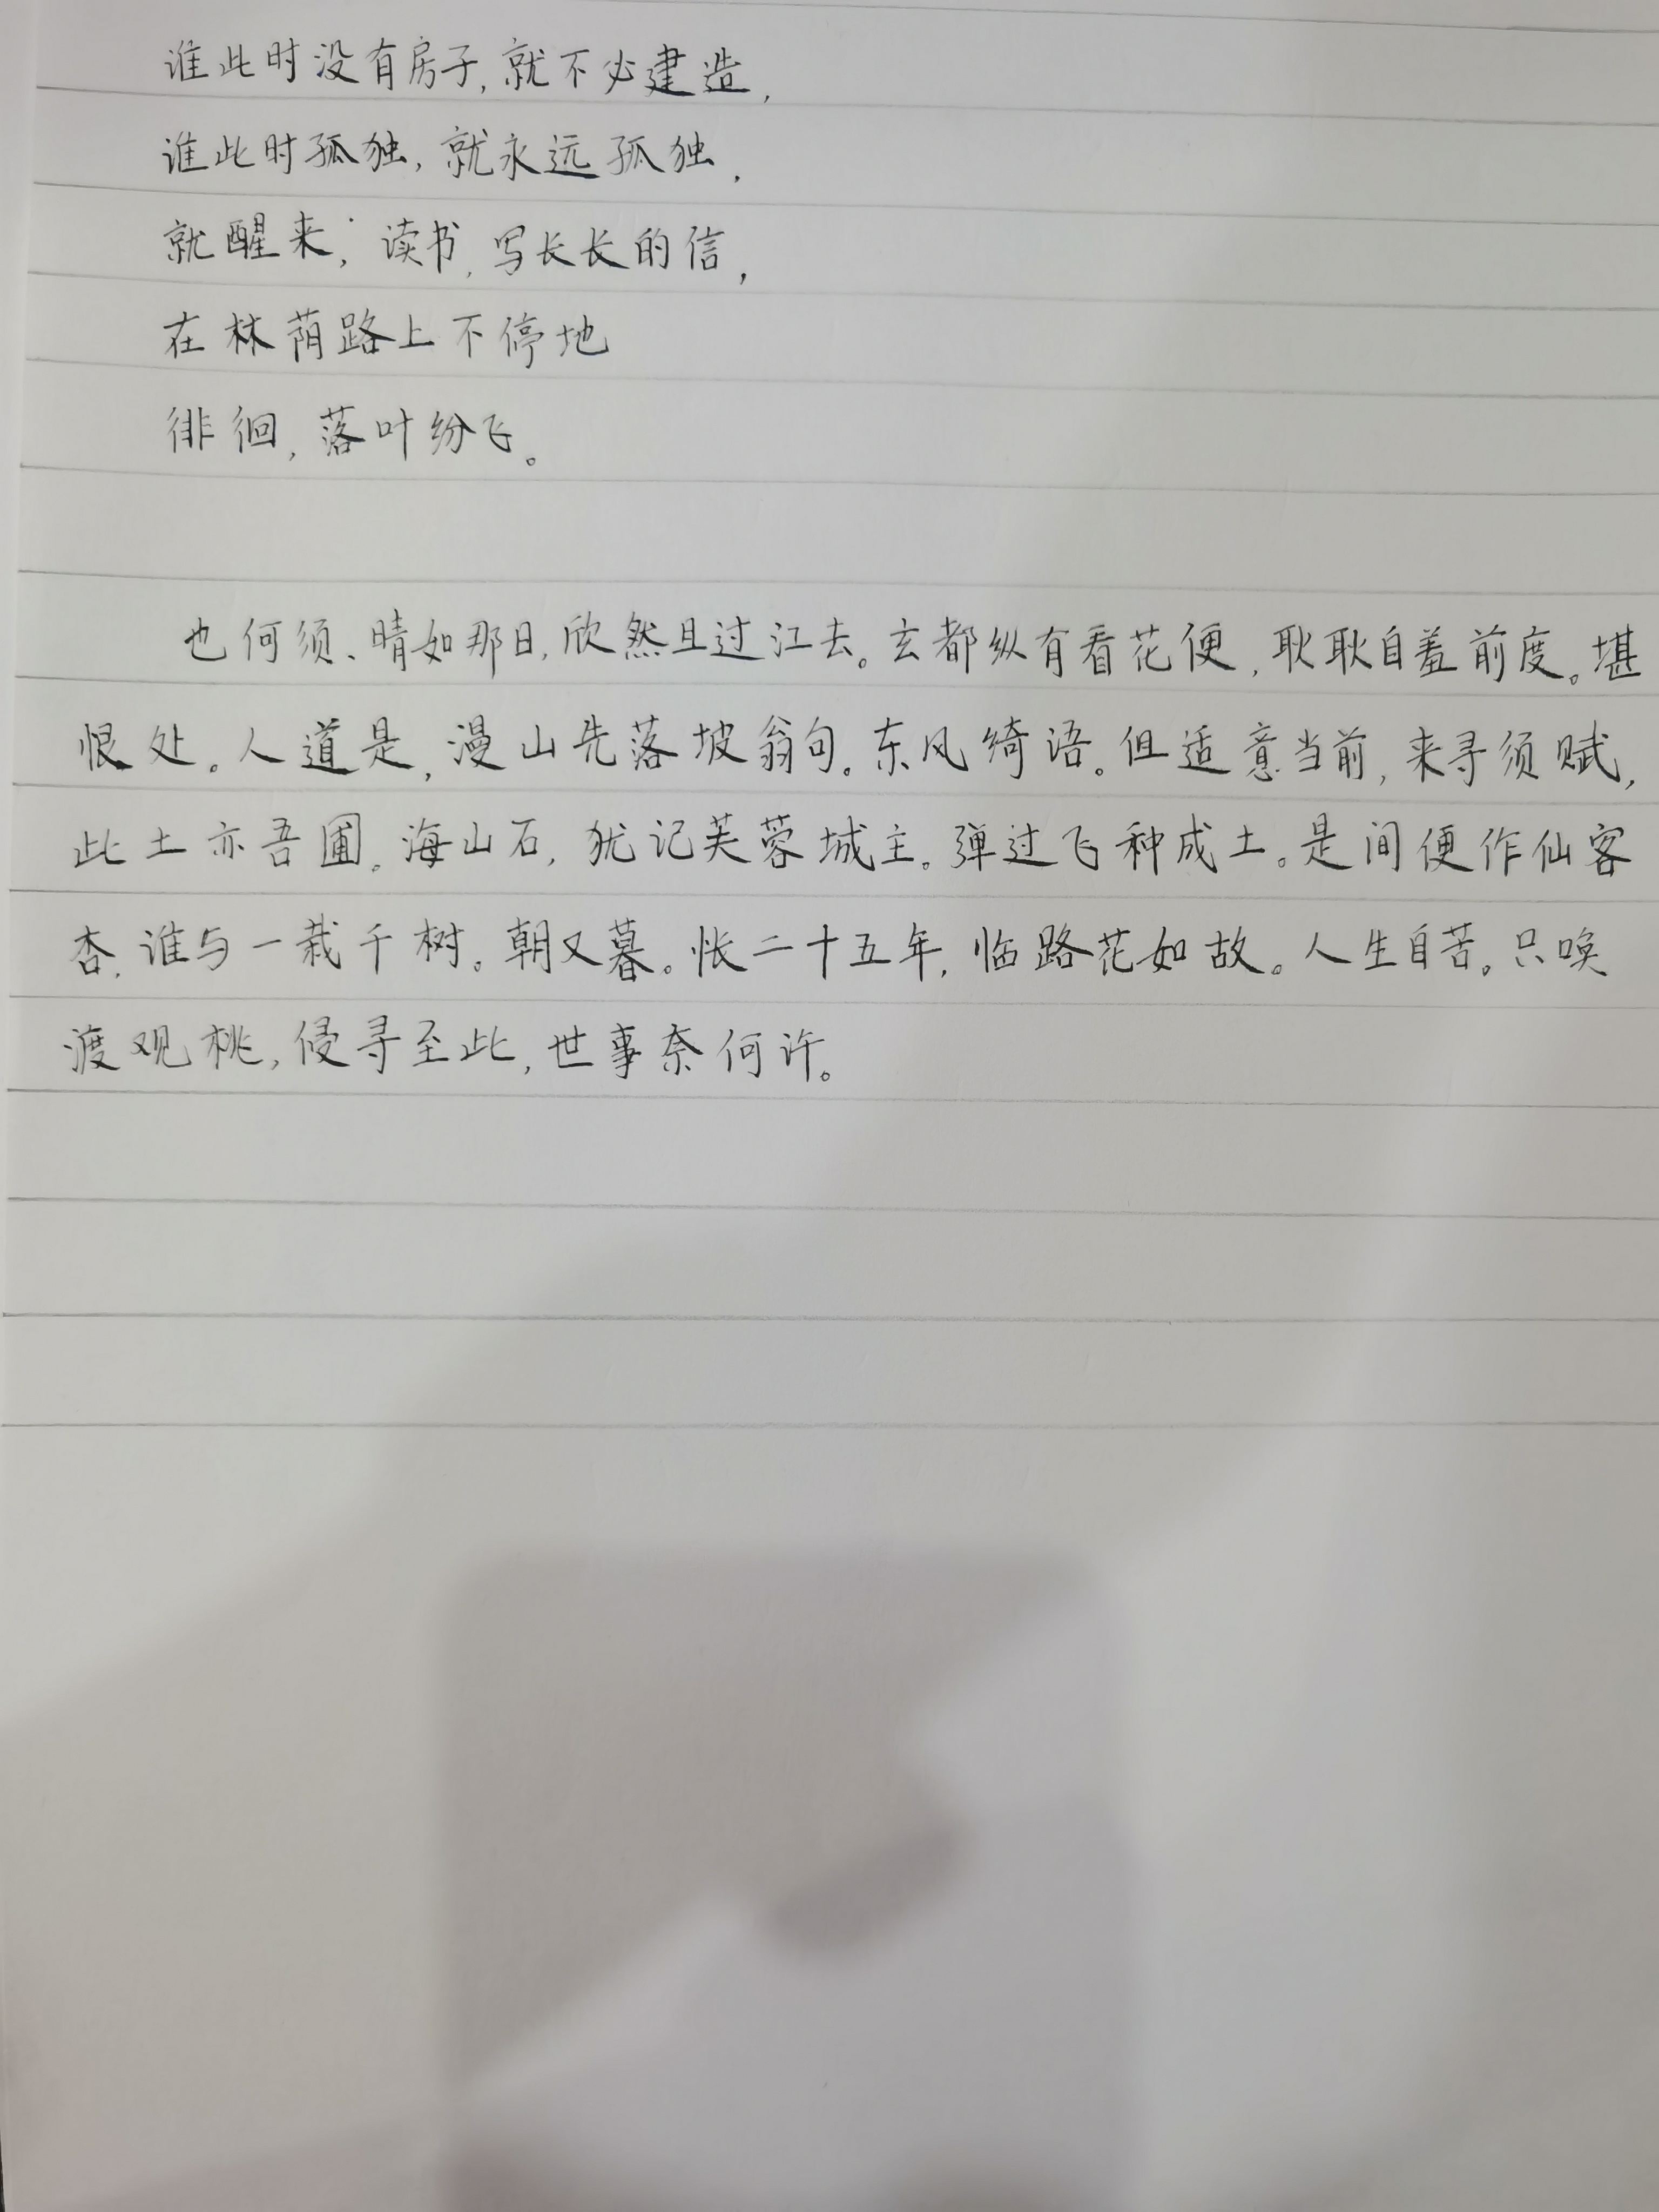 谁此时没有房子,就不必建造,
谁此时孤独,就永远孤独,
就醒来,读书,写长长的信,
在林荫路上不停地
徘徊,落叶纷飞。
也何须、晴如那日,欣然且过江去。玄都纵有看花便,耿耿自羞前度。堪
恨处。人道是,漫山先落坡翁句。东风绮语。但适意当前,来寻须赋,
此土亦吾圃。海山石,犹记芙蓉城主。弹过飞种成土。是间便作仙客
杏,谁与一栽千树。朝又暮。怅二十五年,临路花如故。人生自苦。只唤
渡观桃,侵寻至此,世事奈何许。